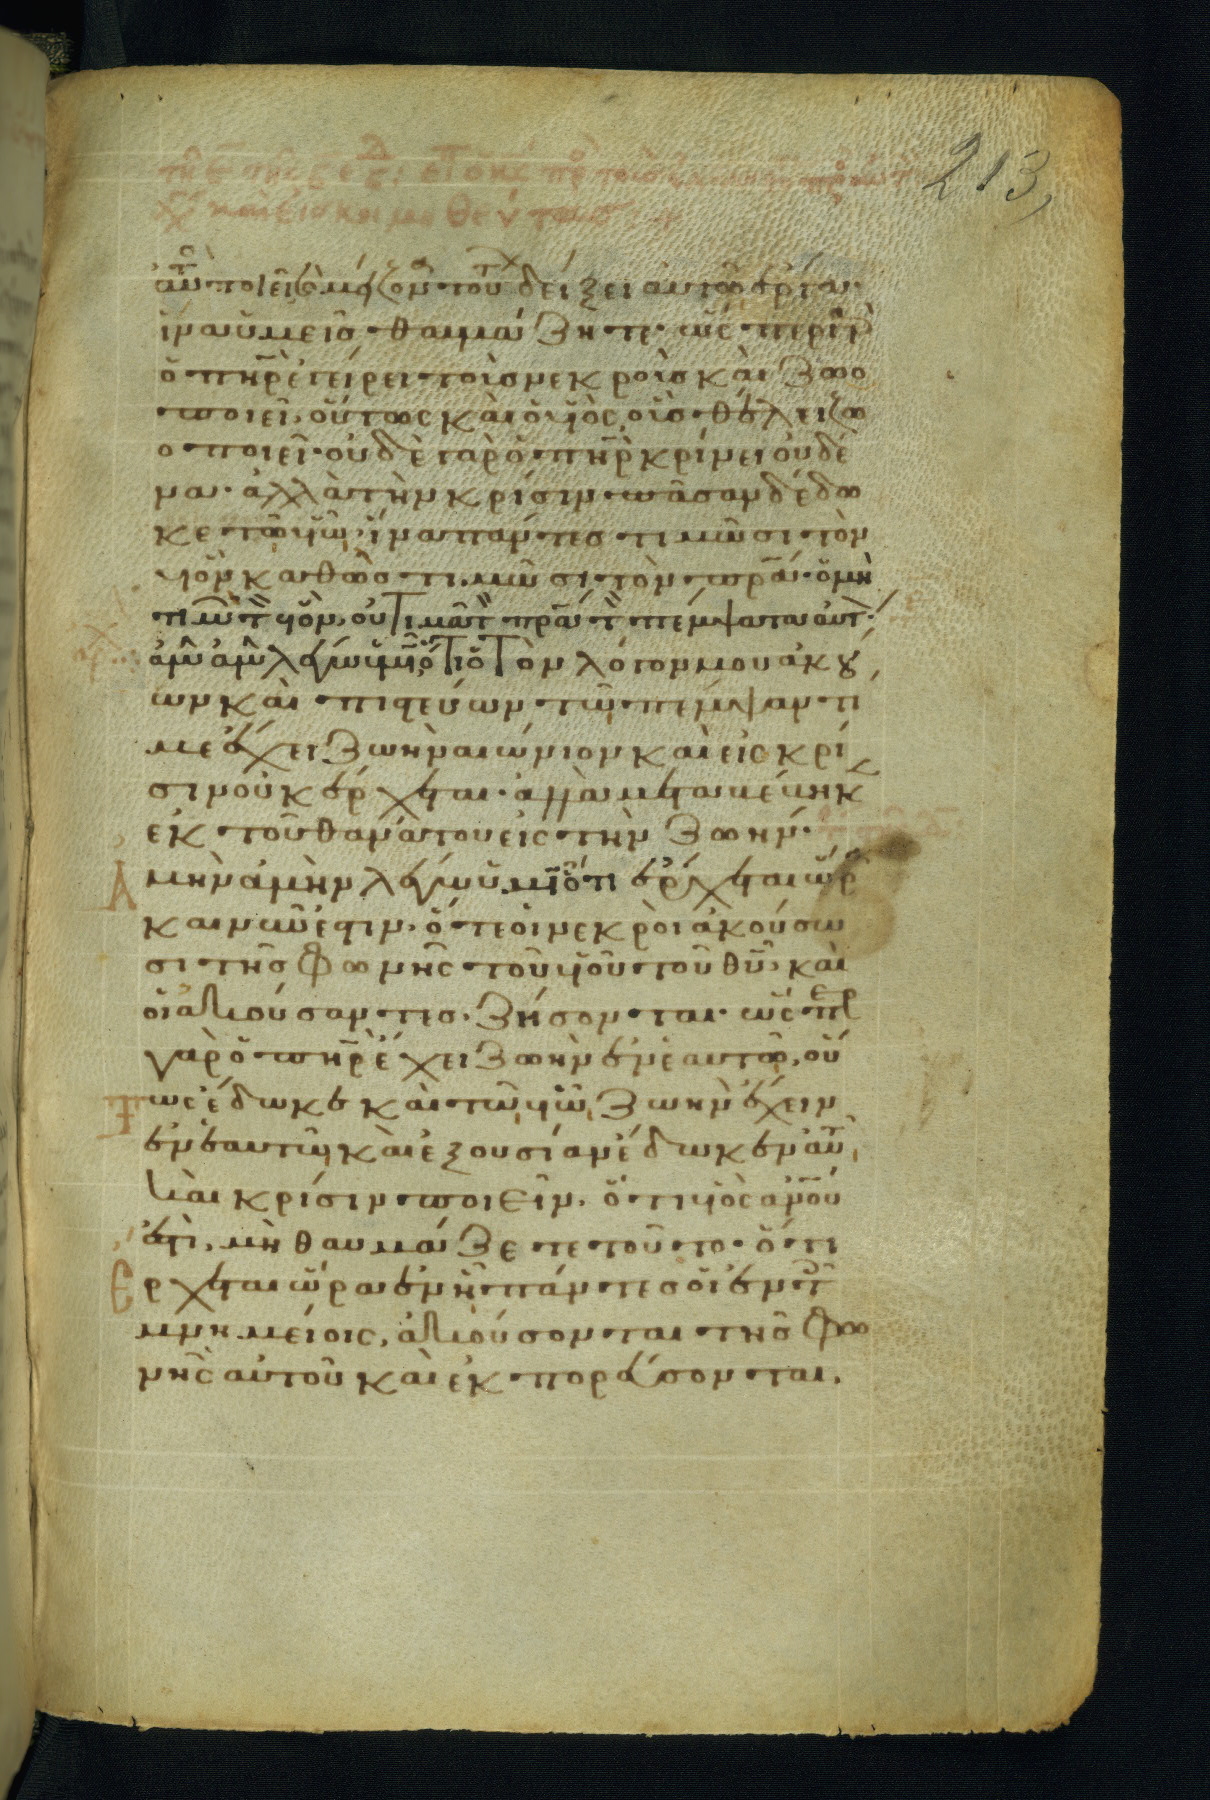 213
ἀυτ ποιεῖ (καὶ) μείζονα τούτ δείξει αὐτῶ ἔργα·
ἵνα ὑμεῖς θαυμάζητε· ὥσπερ γὰρ
ὁ πηρ ἐγείρει τοὺς νεκροὺς καὶ ζωο
ποιεῖ, οὕτως καὶ ὁ υἱὸς οὓς θέλει ζω
οποιεῖ· οὐδὲ γὰρ ὁ πηρ κρίνει οὐδέ
να· ἀλλὰ τὴν κρίσιν πᾶσαν δέδω
κε τῶ υἱῶ, ἵνα πάντες τιμῶσι τὸν
υἱὸν καθὼς τιμῶσι τὸν πρα· ὁ μὴ
τιμῶν τ υἱὸν, οὐ τιμᾶ τ πρα τ πέμψαντα αὐτ·
ἀμὴν ἀμὴν λέγω ὑμῖν ὅτι ὁ τὸν λόγον μου ἀκού
ων καὶ πιστεύων τῶ πέμψαντι
με ἔχει ζωὴν αἰώνιον καὶ εἰς κρί
σιν οὐκ ἔρχεται· ἀλλὰ μεταβέβηκ
ἐκ τοῦ θανάτου εἰς τὴν ζωήν·
Ἀμὴν ἀμὴν λέγω ὑμῖν ὅτι ἔρχεται ὥρ
καὶ νῦν ἐστιν· ὅτε οἱ νεκροὶ ἀκούσω
σι τῆς φωνῆς τοῦ υἱοῦ τοῦ θυ, καὶ
οἱ ἀκούσαντες, ζήσονται· ὥσπερ
γὰρ ὁ πηρ ἔχει ζωὴν ἐν ἑαυτῶ, οὕ
Τως ἔδωκε καὶ τῶ υἱῶ ζωὴν ἔχειν
ἐν ἑαυτῶ καὶ ἐξουσίαν ἔδωκεν αὐτῶ
καὶ κρίσιν ποιεῖν, ὅτι υἱὸς ανου
ἐστὶ, μὴ θαυμάζετε τοῦτο· ὅτι
Ἔρχεται ὥρα ἐν ἧ πάντες οἱ ἐν τ
μνημείοις, ἀκούσονται τῆς φω
νῆς αὐτοῦ καὶ ἐκπορεύσονται.